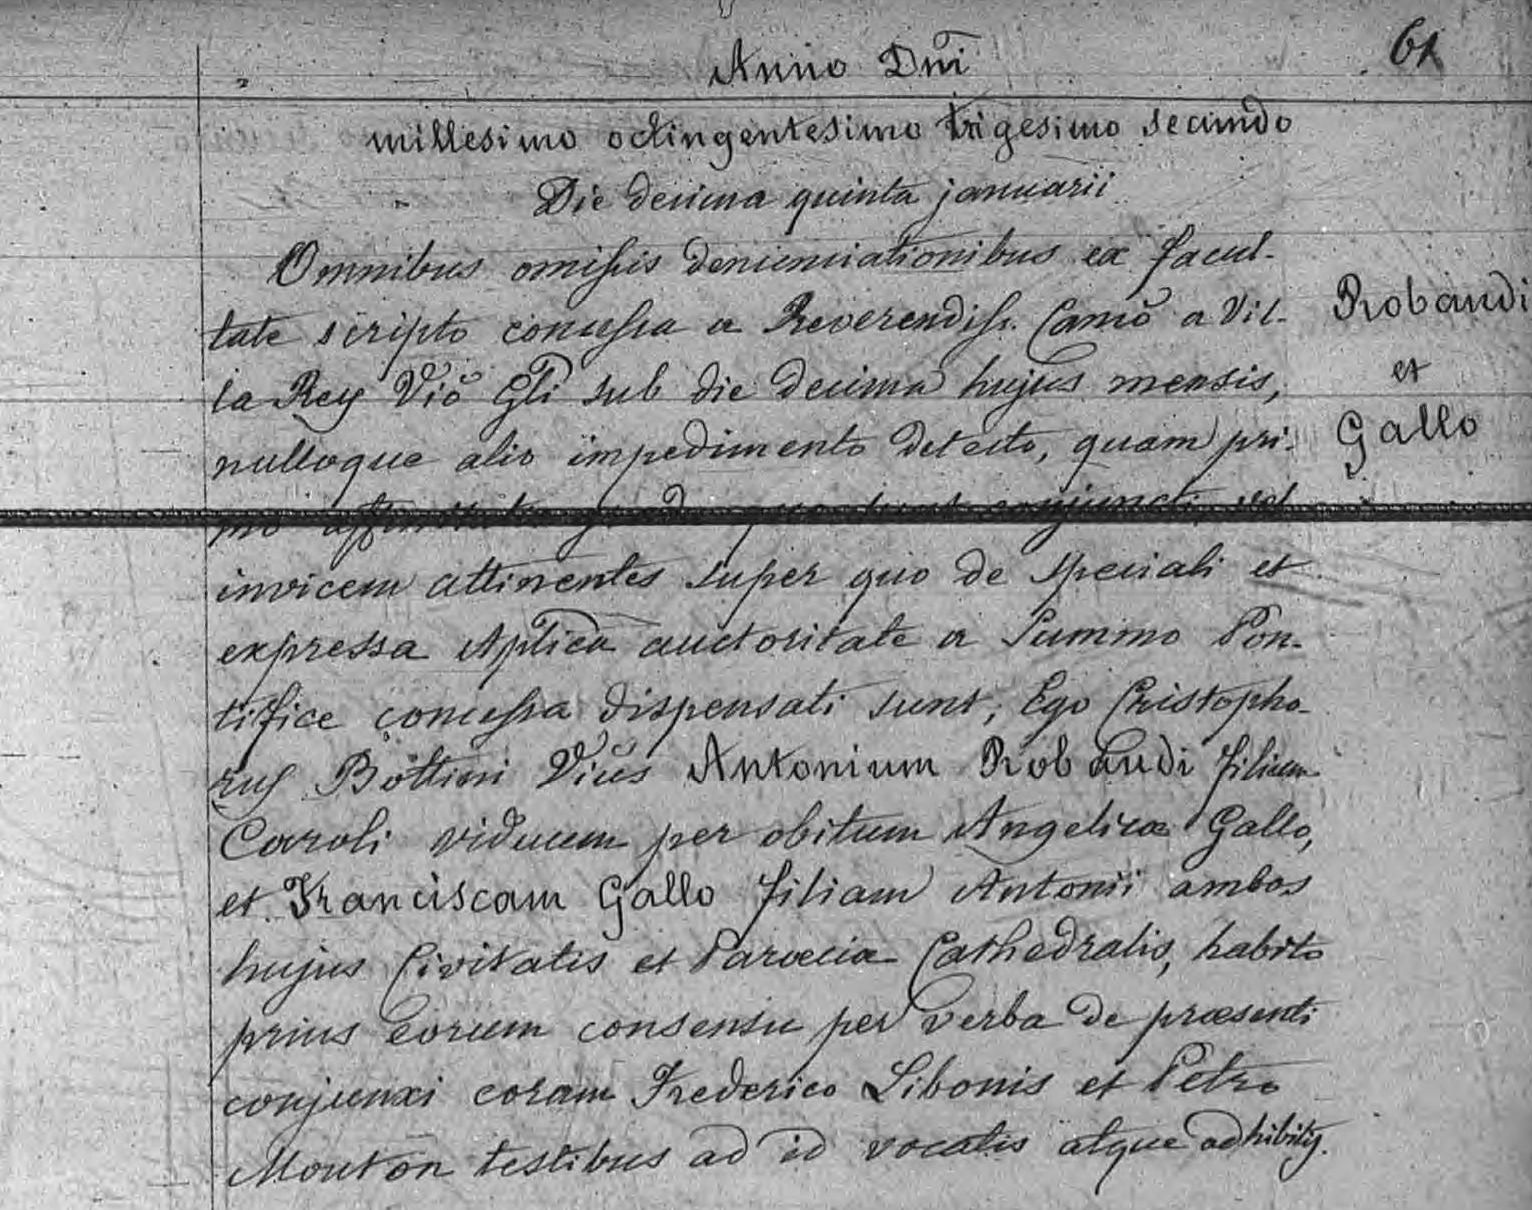 61
Anno Dñi
millesimo octingentesimo trigesimo secundo
Die decima quinta januarii
Omnibus omissis denunciationibus ex facul-
tate scripto concessa a Reverendiss. Canco a Vil-
la Rey Vio Gli sub die decima hujus mensis,
nulloque alio impedimento detecto, quam pri-
mo affinitatis gradu quo sunt conjuncti, vel
invicem attinentes super quo de speciali et
expressa Aplica auctoritate a Summo Pon-
tifice concessa dispensati sunt; Ego Christopho-
rus Bottini Vicus Antonium Robaudi filium
Caroli viduum per obitum Angelicæ Gallo,
et Franciscam Gallo filiam Antonii ambos
hujus Civitatis et Parœcia Cathedralis, habito
prius eorum consensu per verba de præsenti
conjunxi coram Frederico Libonis et Petro
Mouton testibus ad id vocatis atque adhibitis.
Robaudi
et
Gallo